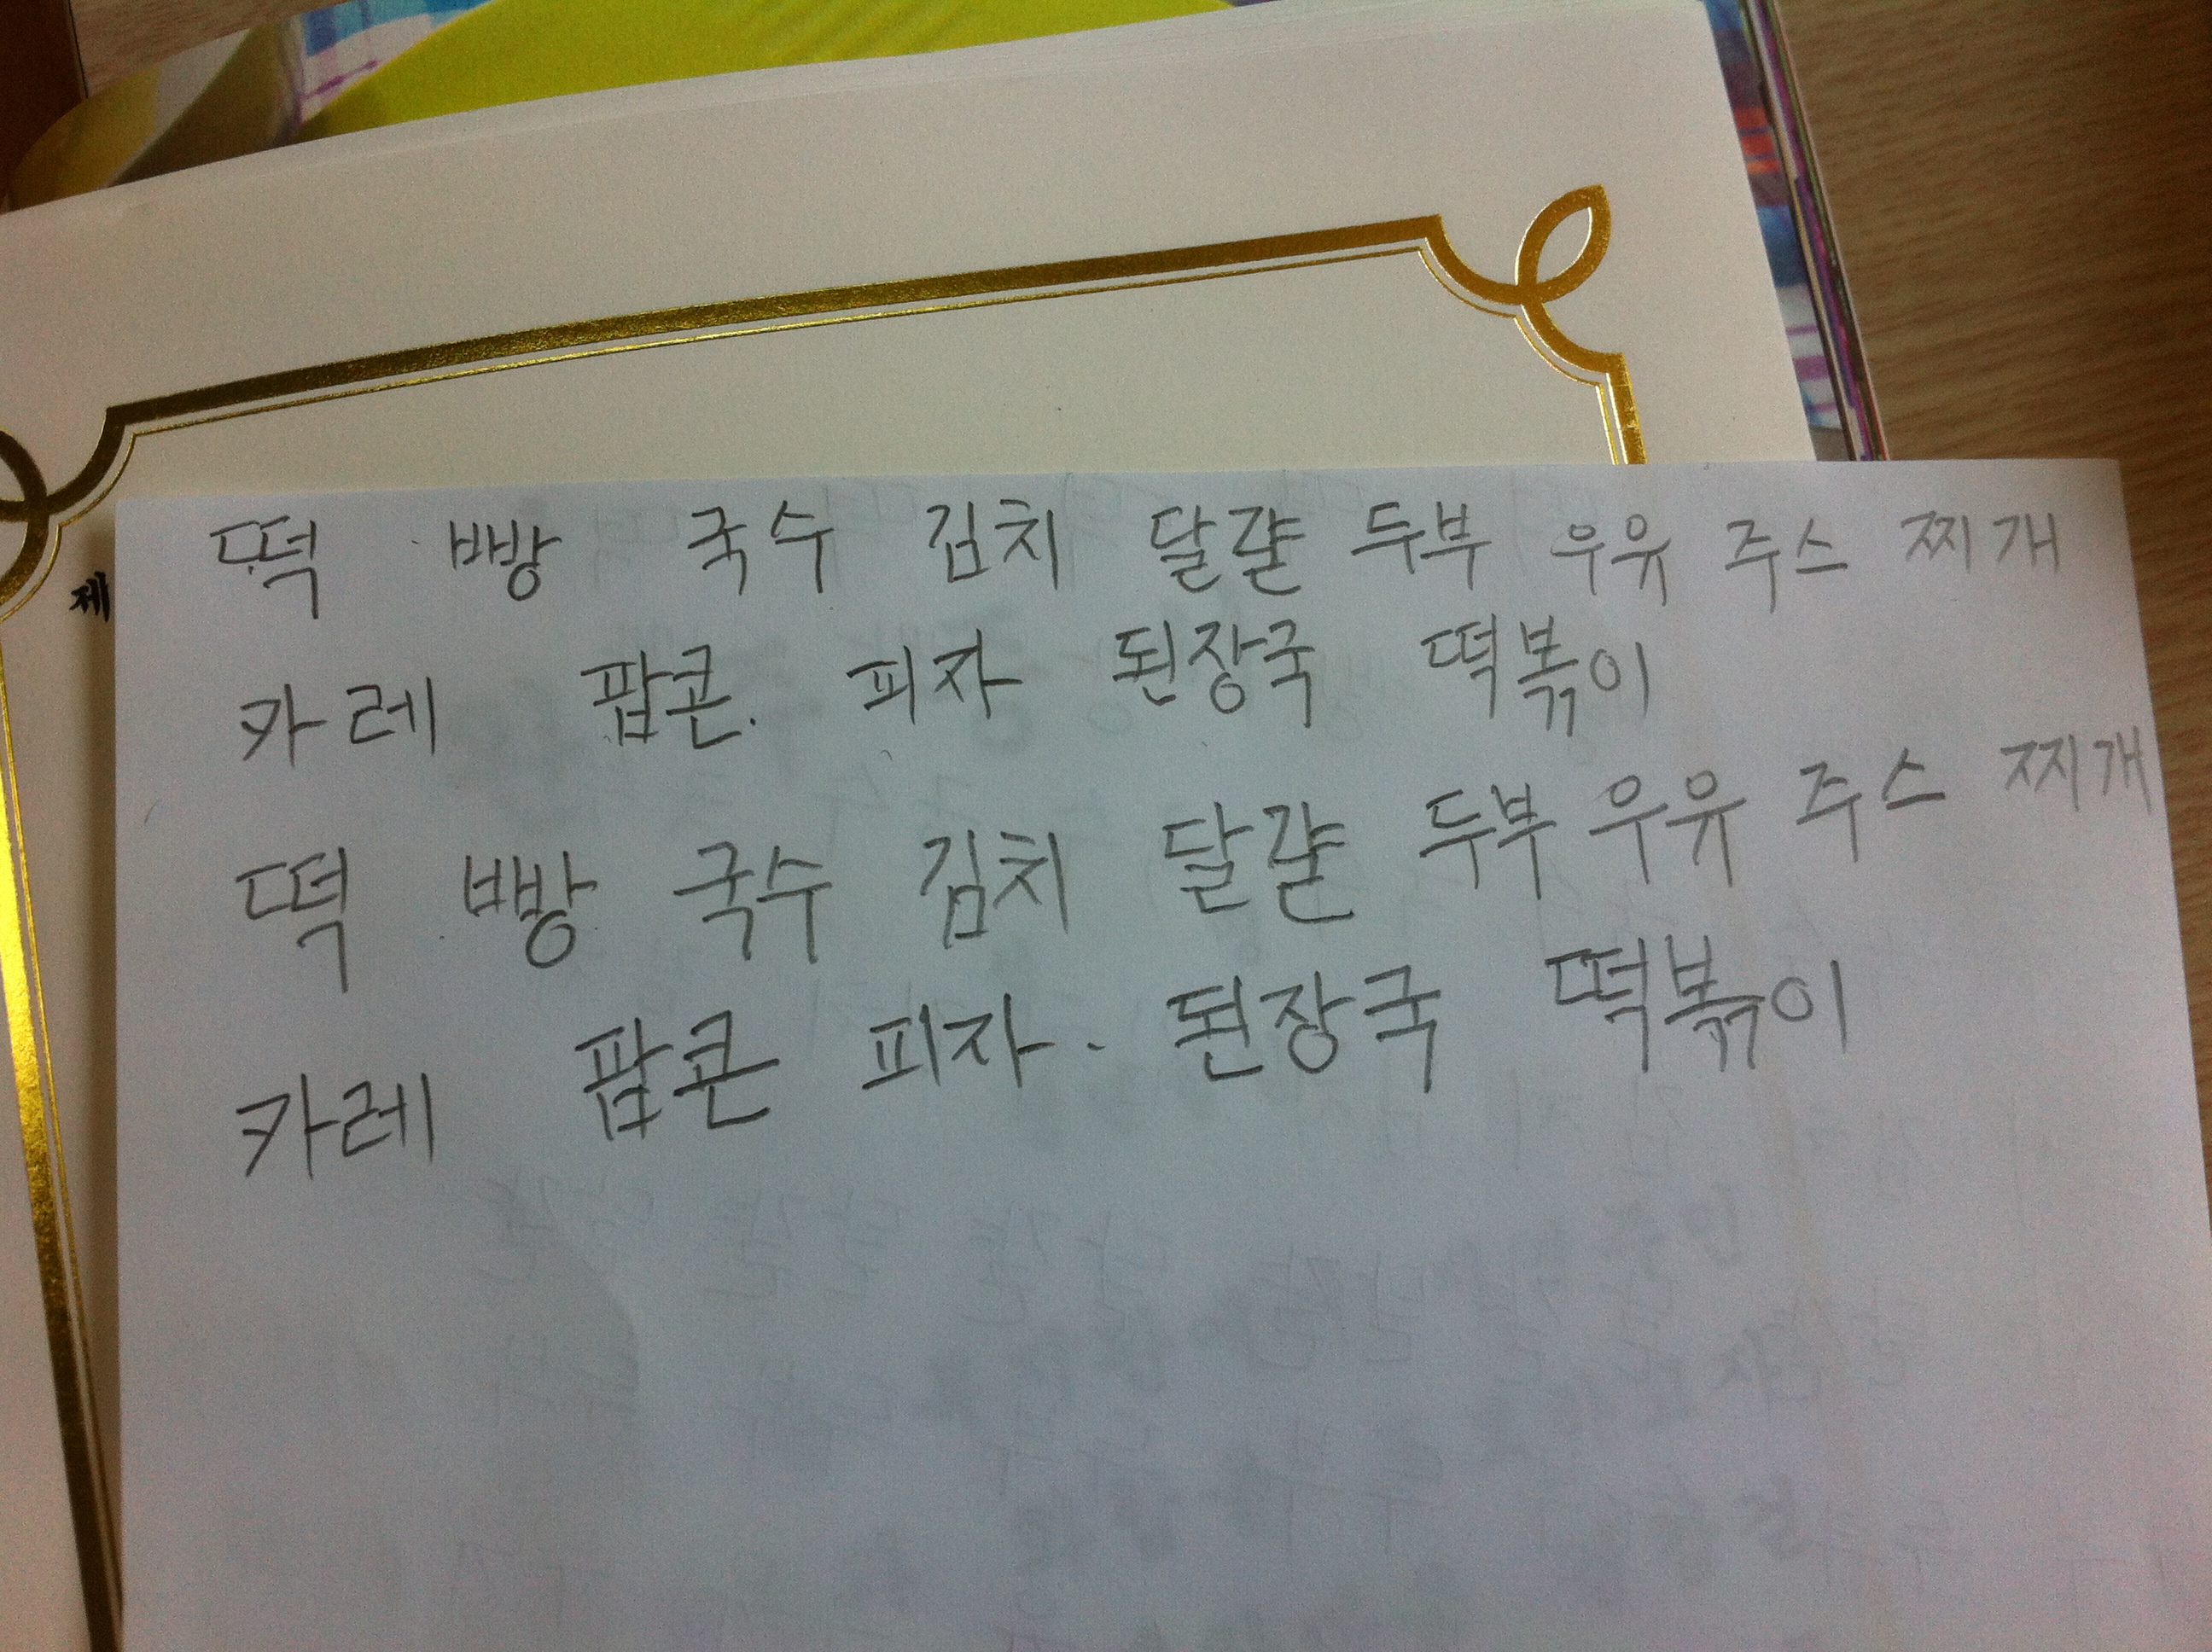 제
떡 빵 국수 김치 달걀 두부 우유 주스 찌개
카레 팝콘. 피자 된장국 떡볶이
떡 빵 국수 김치 달걀 두부 우유 주스 찌개
카레 팝콘 피자. 된장국 떡볶이